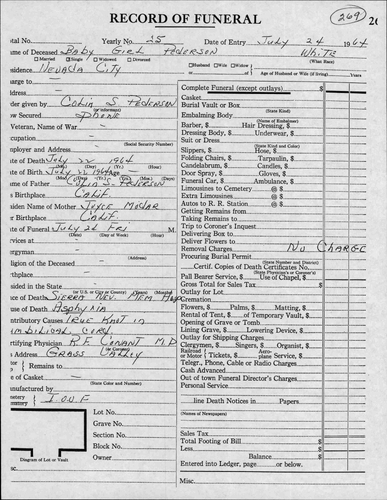 RECORD OF FUNERAL
269
tal No. Yearly No. 25 Date of Entry July 24 1964
me of Deceased Baby Girl Pederson White
Married Single Widowed Divorced (What Race)
sidence Nevada City Husband Wife Widow
or Age of Husband or Wife (if living) Years
arge to
ddress
der given by Colin S. Pederson
(or informant)
ow Secured Phone
Veteran, Name of War
cupation
(Social Security Number)
mployer and Address
te of Death July 22 1964
te of Birth July 22 1964
me of Father Colin S. Pederson
s Birthplace Calif.
aiden Name of Mother Joyce
r Birthplace Calif.
te of Funeral July 26 Fri M.
(Date) (Day of Week) (Hour)
rvices at
ergyman
eligion of the Deceased
rthplace
sided in the State
(or U.S. or City or County) (Years) (Months)
ce of Death Sierra Nev. Mem. Hosp
use of Death Asphyxia
ntributory Causes True Knot in
umbilical cord.
rtifying Physician R.F. Conant M.D.
s Address Grass Valley
Remains to
e of Casket
(State Color and Number)
anufactured by
metery I.O.O.F
Lot No.
Grave No.
Section No.
Block No.
Owner
Diagram of Lot or Vault
Complete Funeral (except outlays) $
Casket
Burial Vault or Box
(State Kind)
Embalming Body
(Name of Embalmer)
Barber, $ Hair Dressing, $
Dressing Body, $ Underwear, $
Suit or Dress
(State Kind and Color)
Slippers, $ Hose, $
Folding Chairs, $ Tarpaulin, $
Candelabrum, $ Candles, $
Door Spray, $ Gloves, $
Funeral Car, $ Ambulance, $
Limousines to Cemetery @ $
Extra Limousines @ $
Autos to R. R. Station @ $
Getting Remains from
Taking Remains to
Trip to Coroner's Inquest
Delivering Box to
Deliver Flowers to
Removal Charges No Charge
Procuring Burial Permit
(State Number and District)
Certif. Copies of Death Certificates No.
(State Physician's or Coroner's)
Pall Bearer Service, $ Use of Chapel, $
Gross Total for Sales Tax $
Outlay for Lot
Cremation
Flowers, $ Palms, $ Matting, $
Rental of Tent, $ of Temporary Vault, $
Opening of Grave or Tomb
Lining Grave, $ Lowering Device, $
Outlay for Shipping Charges
Clergymen, $ Singers, $ Organist, $
Railroad or Motor Tickets, $ Aeroplane Service, $
Telegr., Phone, Cable or Radio Charges
Cash Advanced
Out of town Funeral Director's Charges
Personal Service
line Death Notices in Papers
(Names of Newspapers)
Sales Tax
Total Footing of Bill $
Less $
Balance $
Entered into Ledger, page or below.
Misc.